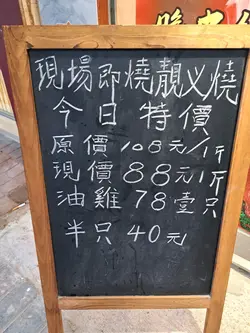 現場即燒靚乂燒
今日特價
原價108元1斤
現價88元1斤
油雞78壹只
半只40元